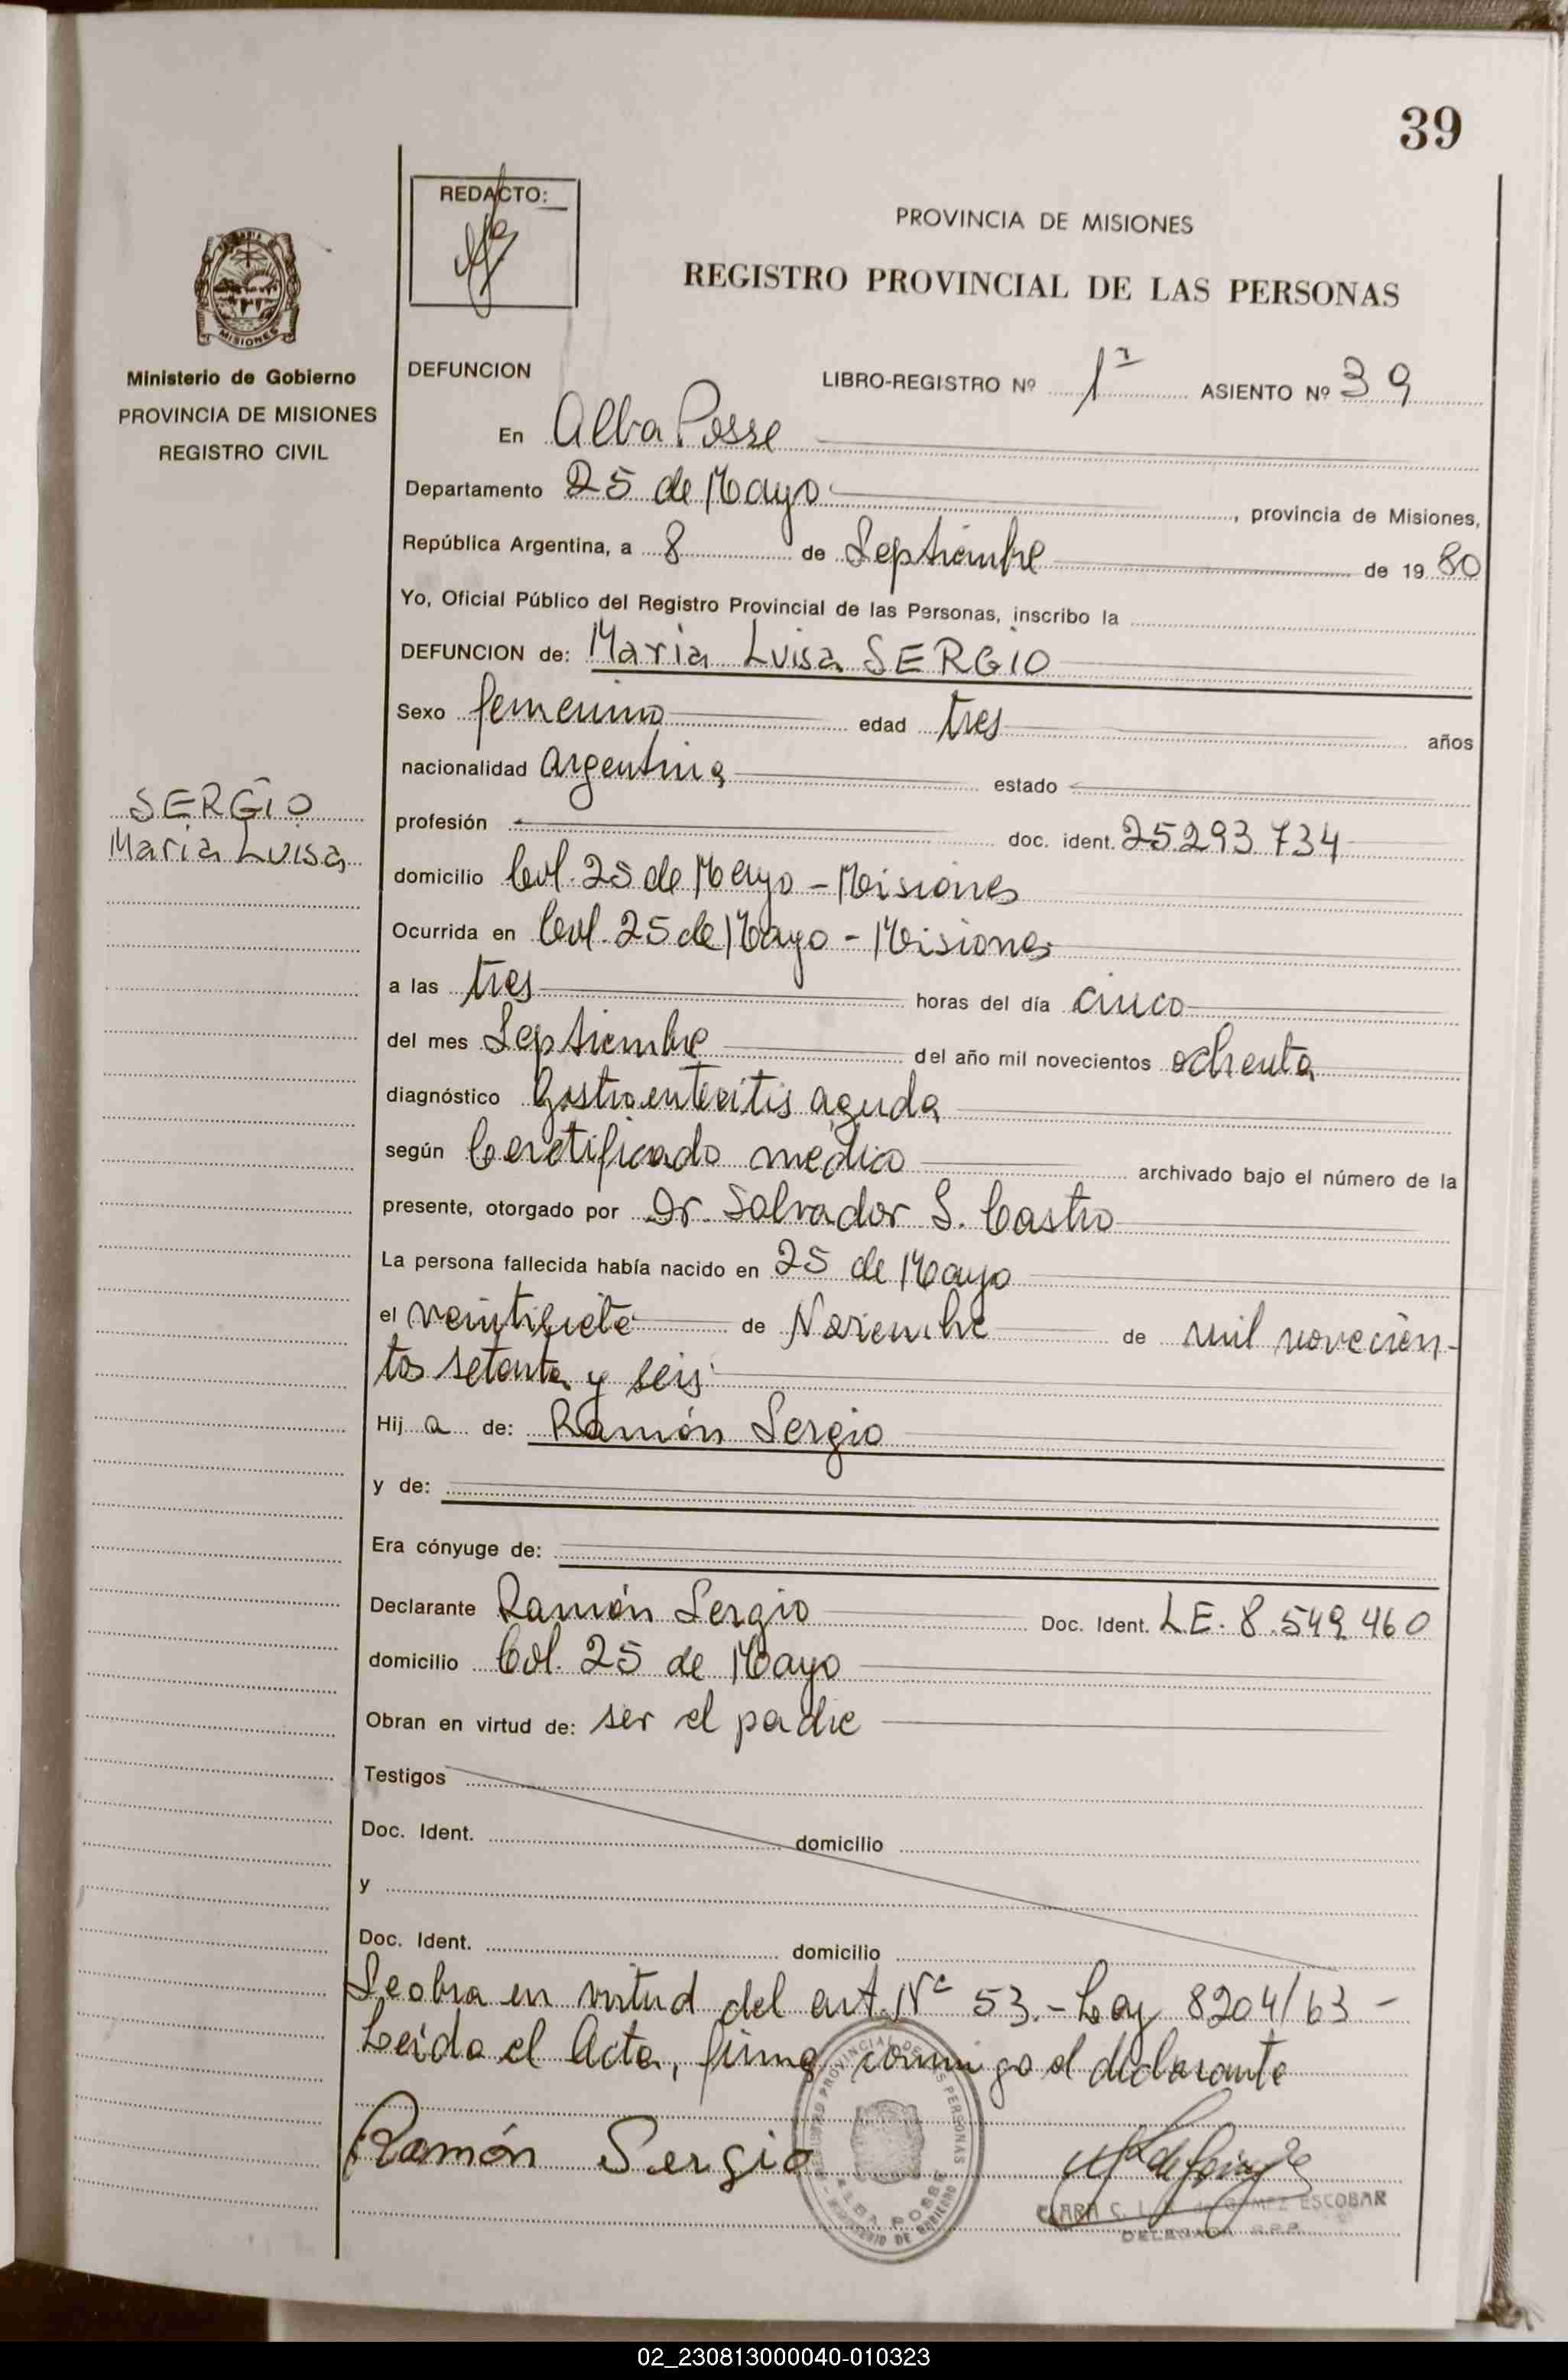 39
REDACTO:
PROVINCIA DE MISIONES
REGISTRO PROVINCIAL DE LAS PERSONAS
MISIONES
Ministerio de Gobierno
PROVINCIA DE MISIONES
REGISTRO CIVIL
DEFUNCION LIBRO-REGISTRO Nº 1º ASIENTO Nº 39
En Alba Posse
Departamento 25 de Mayo, provincia de Misiones,
República Argentina, a 8 de Septiembre de 1980
Yo, Oficial Público del Registro Provincial de las Personas, inscribo la
DEFUNCION de: Maria Luisa SERGIO
Sexo femenino edad tres años
nacionalidad argentina estado
SERGIO
Maria Luisa
profesión doc. ident. 25.293.734
domicilio Col. 25 de Mayo - Misiones
Ocurrida en Col. 25 de Mayo - Misiones
a las tres horas del día cinco
del mes Septiembre del año mil novecientos ochenta
diagnóstico Gastroenteritis aguda
según Ceretificado médico archivado bajo el número de la
presente, otorgado por Dr. Salvador S. Castro
La persona fallecida había nacido en 25 de Mayo
el veintisiete de Noviembre de mil novecien-
tos setenta y seis
Hija de: Ramón Sergio
y de:
Era cónyuge de:
Declarante Ramón Sergio Doc. Ident. L.E. 8.549.460
domicilio Col. 25 de Mayo
Obran en virtud de: ser el padre
Testigos
Doc. Ident. domicilio
y
Doc. Ident. domicilio
Se obra en virtud del art. Nº 53.- Ley 8204/63 -
Leida el Acta, firma conmigo el declarante
Ramón Sergio
PROVINCIAL DE LAS PERSONAS
ALBA POSSE
MINISTERIO DE GOBIERNO
CLARA C. L. de GOMEZ ESCOBAR
DELEGADA R.P.P.
02_230813000040-010323